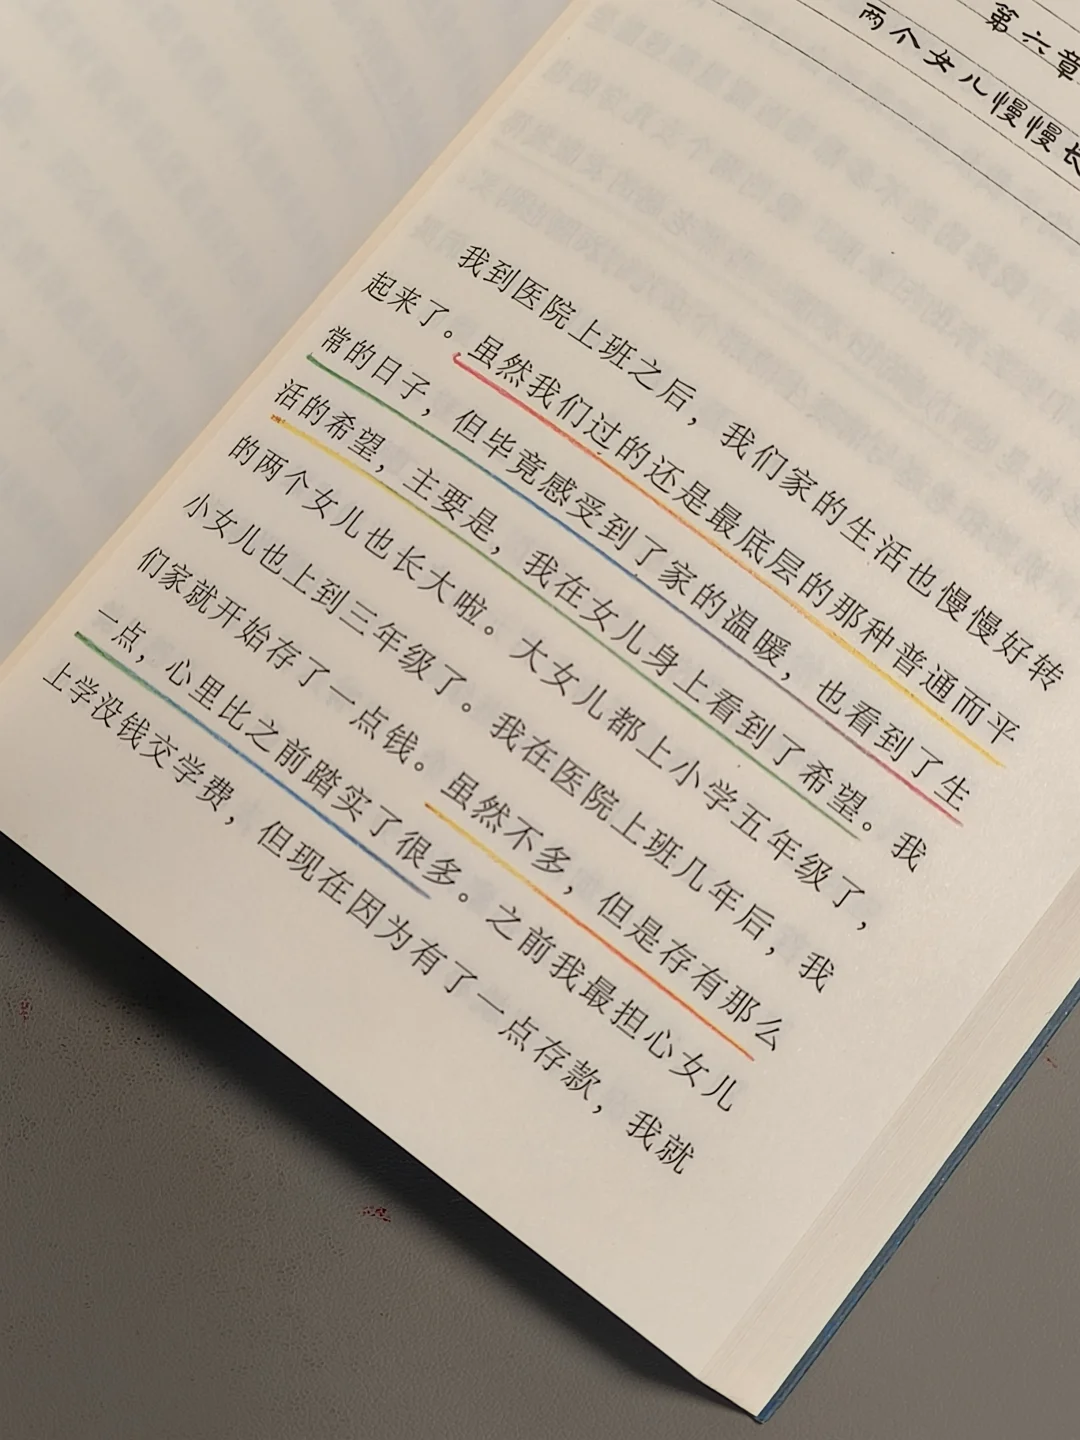 第六章
两个女儿慢慢长
我到医院上班之后，我们家的生活也慢慢好转
起来了。虽然我们过的还是最底层的那种普通而平
常的日子，但毕竟感受到了家的温暖，也看到了生
活的希望，主要是，我在女儿身上看到了希望。我
的两个女儿也长大啦。大女儿都上小学五年级了，
小女儿也上到三年级了。我在医院上班几年后，我
们家就开始存了一点钱。虽然不多，但是存有那么
一点，心里比之前踏实了很多。之前我最担心女儿
上学没钱交学费，但现在因为有了一点存款，我就